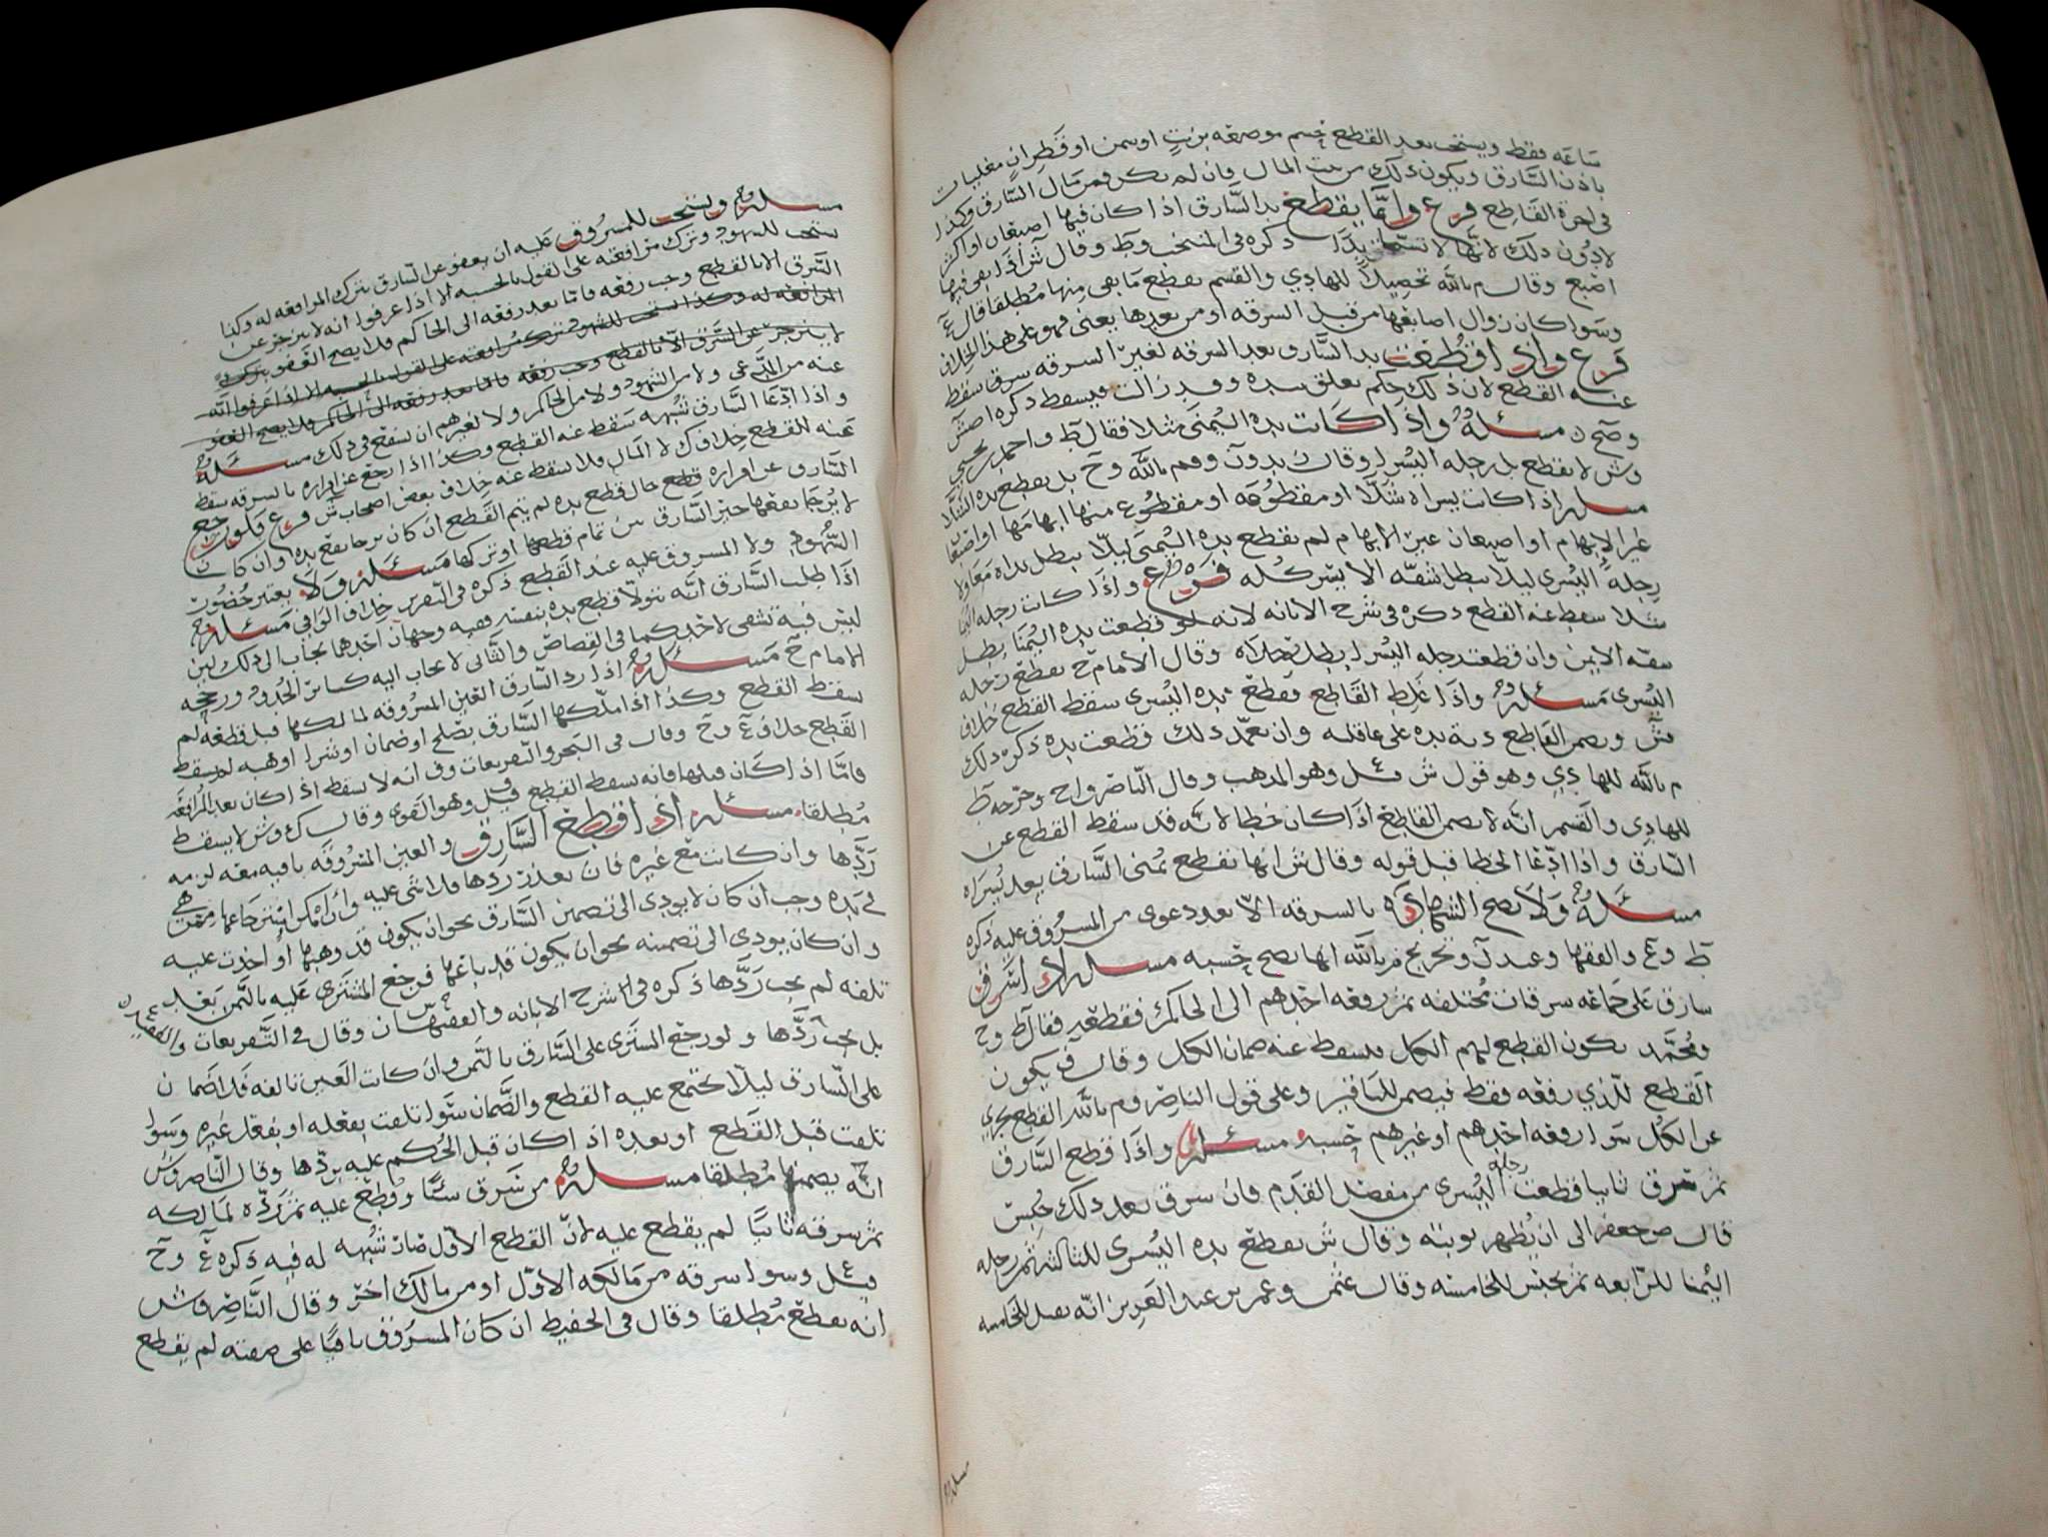 ساعه فقط ويستحب بعد القطع حسم موضعه بزيت او سمن او قطران مغليات
باذن السارق ويكون ذلك من بيت المال فان لم يكن فمن مال السارق وكذا
في اجرة القاطع فرع وانما يقطع يد السارق اذا كان فيها اصبعان او اكثر
لا دون ذلك لانها لا تسمى يدا ذكره في المنتخب وط وقال ش اذا بقي فيها
اصبع وقال م بالله تحصيلا للهادي والقسم يقطع ما بقي منها مطلقا قال ع
وسوا كان زوال اصابعها من قبل السرقه او من بعدها يعني فهو على هذا الخلاف
فرع واذا قطعت يد السارق بعد السرقه لغير السرقه سقط
عنه القطع لان ذلك حكم تعلق بيده وقد زالت فيسقط ذكره اصش
وصح د مسئله واذا كانت يده اليمنى شلا فقال ط واحمد بن يحيى
وش لا يقطع بل رجله اليسرى وقال ن وم بالله وح بل يقطع يده الشلا
مسئله اذا كانت يسراه شلا او مقطوعه او مقطوع منها ابهامها او اصبعان
غير الابهام لم تقطع يده اليمنى ليلا يبطل يداه معا ولا
رجله اليسرى ليلا يبطل شقه الايسر كله فرع واذا كانت رجله اليمنا
شلا سقط عنه القطع ذكره في شرح الابانه لانه لو قطعت يده اليمنا بطل
شقه الايمن وان قطعت رجله اليسرى بطل رجلاه وقال الامام ح تقطع رجله
اليسرى مسئله واذا غلط القاطع فقطع يده اليسرى سقط القطع خلاف
ش ويضمن القاطع دية يده على عاقلته وان تعمد ذلك قطعت يده ذكر ذلك
م بالله للهادي وهو قول ش قيل وهو المذهب وقال الناصر واح وخرجه ط
للهادي والقسم انه لا يضمن القاطع اذا كان خطا لانه قد سقط القطع عن
السارق واذا ادعا الخطا قبل قوله وقال ش انها تقطع يمنى السارق بعد يسراه
مسئله ولا تصح الشهاده بالسرقه الا بعد دعوى من المسروق عليه ذكره
ط وع والفقها وعند ن وتخريج م بالله انها تصح حسبه مسئله اذا سرق
سارق على جماعه سرقات مختلفه ثم رفعه احدهم الى الحاكم فقطعه فقال ط وح
ومحمد يكون القطع لهم الكل فيسقط عنه ضمان الكل وقال ف يكون
القطع للذي رفعه فقط فيضمن للباقين وعلى قول الناصر وم بالله القطع يجزي
عن الكل سوا رفعه احدهم او غيرهم حسبه مسئله واذا قطع السارق
ثم سرق ثانيا قطعت رجله اليسرى من مفصل القدم فان سرق بعد ذلك حبس
قال ص جعفر الى ان يظهر توبته وقال ش يقطع يده اليسرى للثالثه ثم رجله
اليمنا للرابعه ثم يحبس للخامسه وقال عثمن وعمر بن عبد العزيز انه يقتل للخامسه
مسئله ويستحب للمسروق عليه ان يعفو عن السارق بترك المرافعه له وكذا
يستحب للشهود ترك مرافعته على القول بالحسبه الا اذا عرفوا انه لا ينزجر عن
السرق الا بالقطع وجب رفعه فاما بعد رفعه الى الحاكم فلا يصح العفو
المرافعه له وكذا يستحب للشهود ترك مرافعته على القول بالحسبه الا اذا عرفوا انه
لا ينزجر عن السرق الا بالقطع وجب رفعه فاما بعد رفعه الى الحاكم فلا يصح العفو
عنه من المدعي ولا من الشهود ولا من الحاكم ولا لغيرهم ان يشفع في ذلك مسئله
واذا ادعا السارق شبهه سقط عنه القطع وكذا اذا رجع عن اقراره بالسرقه سقط
عنه القطع خلاف ك لا المال فلا يسقط عنه خلاف بعض اصحاب ش فرع فلو رجع
السارق عن اقراره قطع حال قطع يده لم يتم القطع ان كان يرجا نفع يده وان كان
لا يرجا نفعها خير السارق بين تمام قطعها او تركها مسئله ولا يعتبر حضور
الشهود ولا المسروق عليه عند القطع ذكره في التقرير خلاف الوافي مسئله
اذا طلب السارق انه يتولا قطع يده بنفسه ففيه وجهان احدهما يجاب الى ذلك اذ
ليس فيه تشفي لاحد كما في القصاص والثاني لا يجاب اليه كسائر الحدود ورجحه
الامام ح مسئله اذا رد السارق العين المسروقه لمالكها قبل قطعه لم
يسقط القطع وكذا اذا ملكها السارق بصلح او ضمان او شرا او هبه لم يسقط
القطع خلاف ع وح وقال في البحر والتفريعات وف انه لا يسقط اذا كان بعد المرافعه
فاما اذا كان قبلها فانه يسقط القطع قيل وهو القوي وقال ك وش لا يسقط
مطلقا مسئله اذا قطع السارق والعين المسروقه باقيه معه لزمه
ردها وان كانت مع غيره فان تعذر ردها فلا شي عليه وان امكن استرجاعها ممن هي
في يده وجب ان كان لا يودي الى تضمين السارق نحو ان يكون قد وهبها او اخذت عليه
وان كان يودي الى تضمينه نحو ان يكون قد باعها فرجع المشتري عليه بالثمن بعد
تلفه لم يجب ردها ذكره في شرح الابانه والفقيهان وقال في التفريعات
بل يجب ردها ولو رجع المشتري على السارق بالثمن وان كانت العين تالفه فلا ضمان
على السارق ليلا يجتمع عليه القطع والضمان سوا تلفت بفعله او بفعل غيره وسوا
تلفت قبل القطع او بعده اذا كان قبل الحكم عليه بردها وقال الناصر وش
انه يضمنها مطلقا مسئله من سرق شيا وقطع عليه ثم رده لمالكه
ثم سرقه ثانيا لم يقطع عليه لان القطع الاول صار شبهه له فيه ذكره ع وح
قيل وسوا سرقه من مالكه الاول او من مالك اخر وقال الناصر وش
انه يقطع مطلقا وقال في الحفيظ ان كان المسروق باقيا على صفته لم يقطع